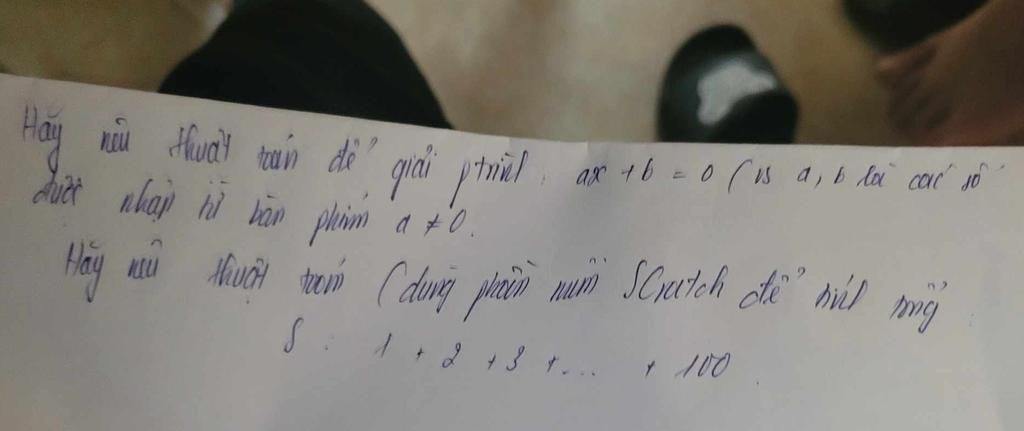 Hãy nêu thuật toán để giải ptrình: ax + b = 0 (vs a, b là các số
được nhập từ bàn phím a ≠ 0.
Hãy nêu thuật toán (dùng phần mềm SCratch để tính tổng:
S: 1 + 2 + 3 + ... + 100.